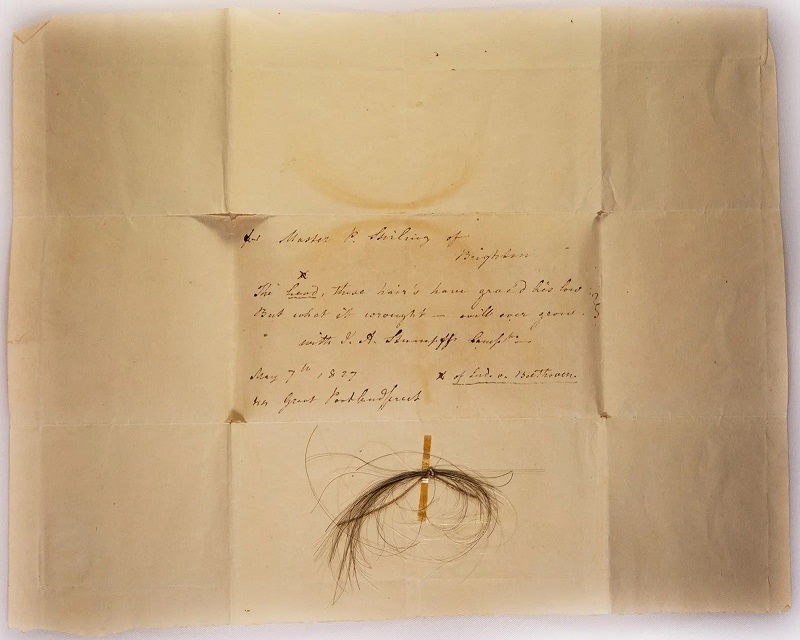 for Master P. Stirling of
Brighton
The head, these hair's have grac'd lies low
But what it wrought – will ever grow.
with J. A. Stumpff
May 7th 1827
Great Portland Street
x of Lud. v. Beethoven.